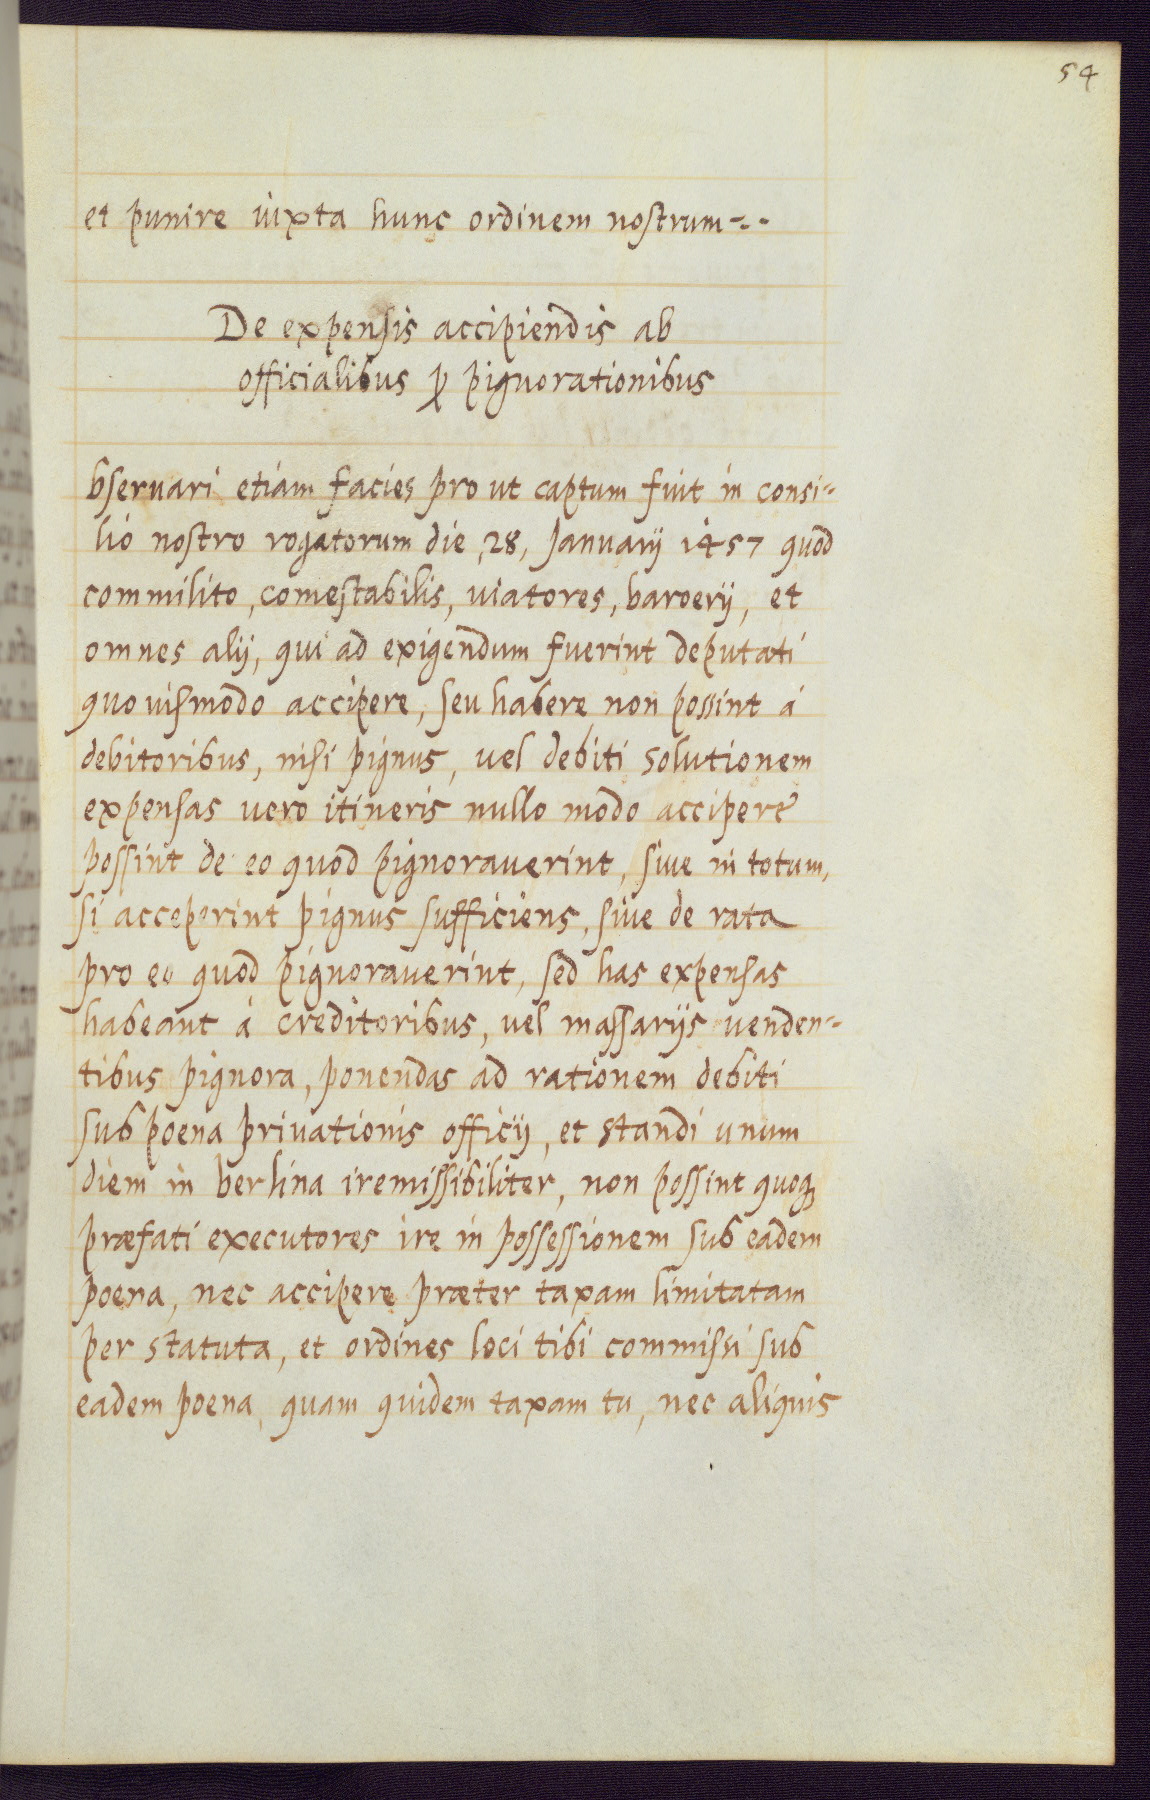 54
et punire iuxta hunc ordinem nostrum-.-
De expensis accipiendis ab
officialibus ꝓ pignorationibus
bseruari etiam facies pro ut captum fuit in consi-
lio nostro rogatorum die ,28, Januarij 1457 quod
commilito, comestabilis, uiatores, baroerij, et
omnes alij, qui ad exigendum fuerint deputati
quouismodo accipere, seu habere non possint á
debitoribus, nisi pignus, uel debiti solutionem
expensas uero itineris nullo modo accipere
possint de eo quod pignorauerint, siue in totum,
si acceperint pignus sufficiens, siue de rata
pro eo quod pignorauerint, sed has expensas
habeant á creditoribus, uel massarijs uenden-
tibus pignora, ponendas ad rationem debiti
sub poena priuationis officij, et standi unum
diem in berlina iremissibiliter, non possint quoqȝ
præfati executores ire in possessionem sub eadem
poena, nec accipere præter taxam limitatam
per statuta, et ordines loci tibi commissi sub
eadem poena, quam quidem taxam tu, nec aliquis